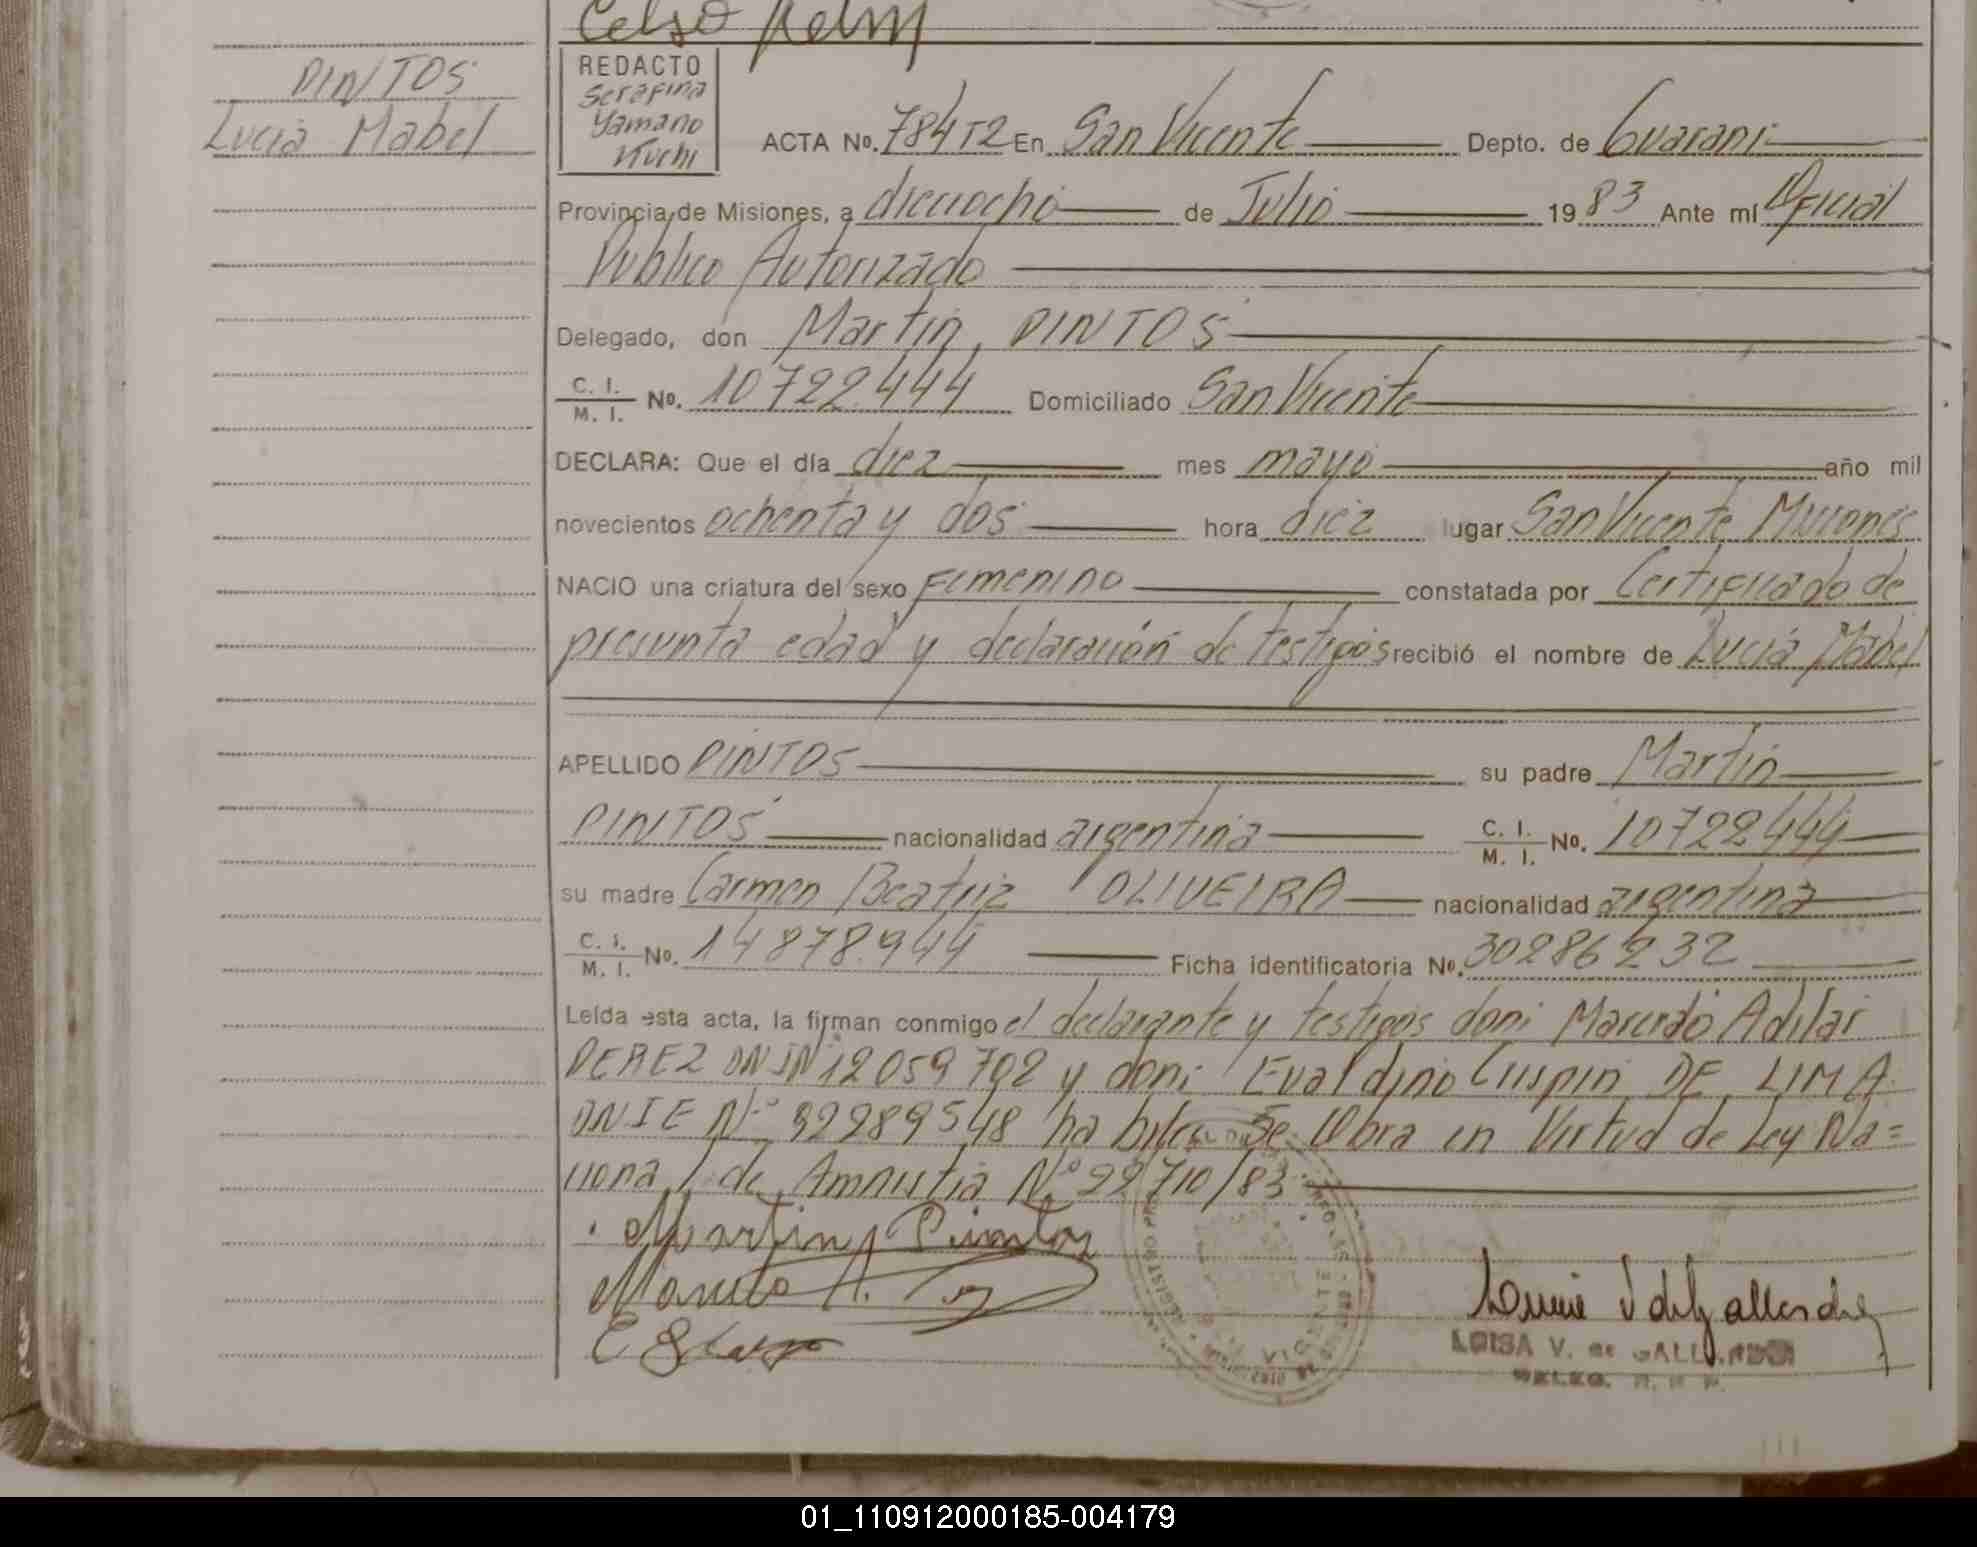 Celso
PINTOS
Lucia Mabel
REDACTO
Serafina
Yamano
Kuchi
ACTA No. 784T2 En San Vicente Depto. de Guarani
Provincia de Misiones, a dieciocho de Julio 1983 Ante mí Oficial
Publico Autorizado
Delegado, don Martin PINTOS
C. I. / M. I. No. 10722.444 Domiciliado San Vicente
DECLARA: Que el día diez mes mayo año mil
novecientos ochenta y dos hora diez lugar San Vicente Misiones
NACIO una criatura del sexo Femenino constatada por Certificado de
presunta edad y declaración de testigos recibió el nombre de Lucia Mabel
APELLIDO PINTOS su padre Martin
PINTOS nacionalidad argentina C. I. / M. I. No. 10722444
su madre Carmen Beatriz OLIVEIRA nacionalidad argentina
C. I. / M. I. No. 14878.944 Ficha identificatoria No. 30286232
Leída esta acta, la firman conmigo el declarante y testigos don: Adilar
PEREZ 12059702 y don: Evaldino Crispin DE LIMA
DNIE Nº 92289548 ha biles Se Obra en Virtud de Ley Na=
cional de Amnistia Nº 22710/83
Martin Pintos
LUISA V. de GALLARDO
01_110912000185-004179